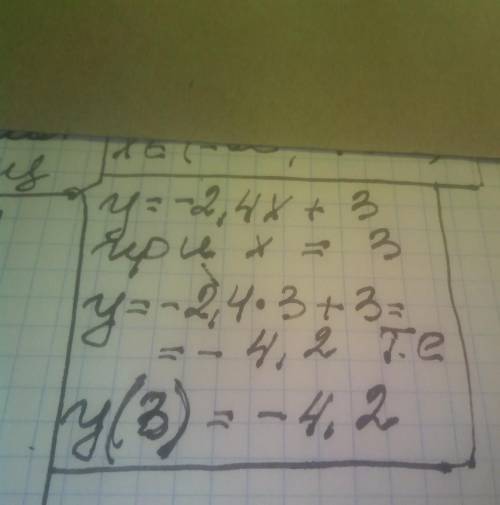 y = -2,4x + 3
при x = 3
y = -2,4·3 + 3 =
= -4,2 т.е
y(3) = -4,2